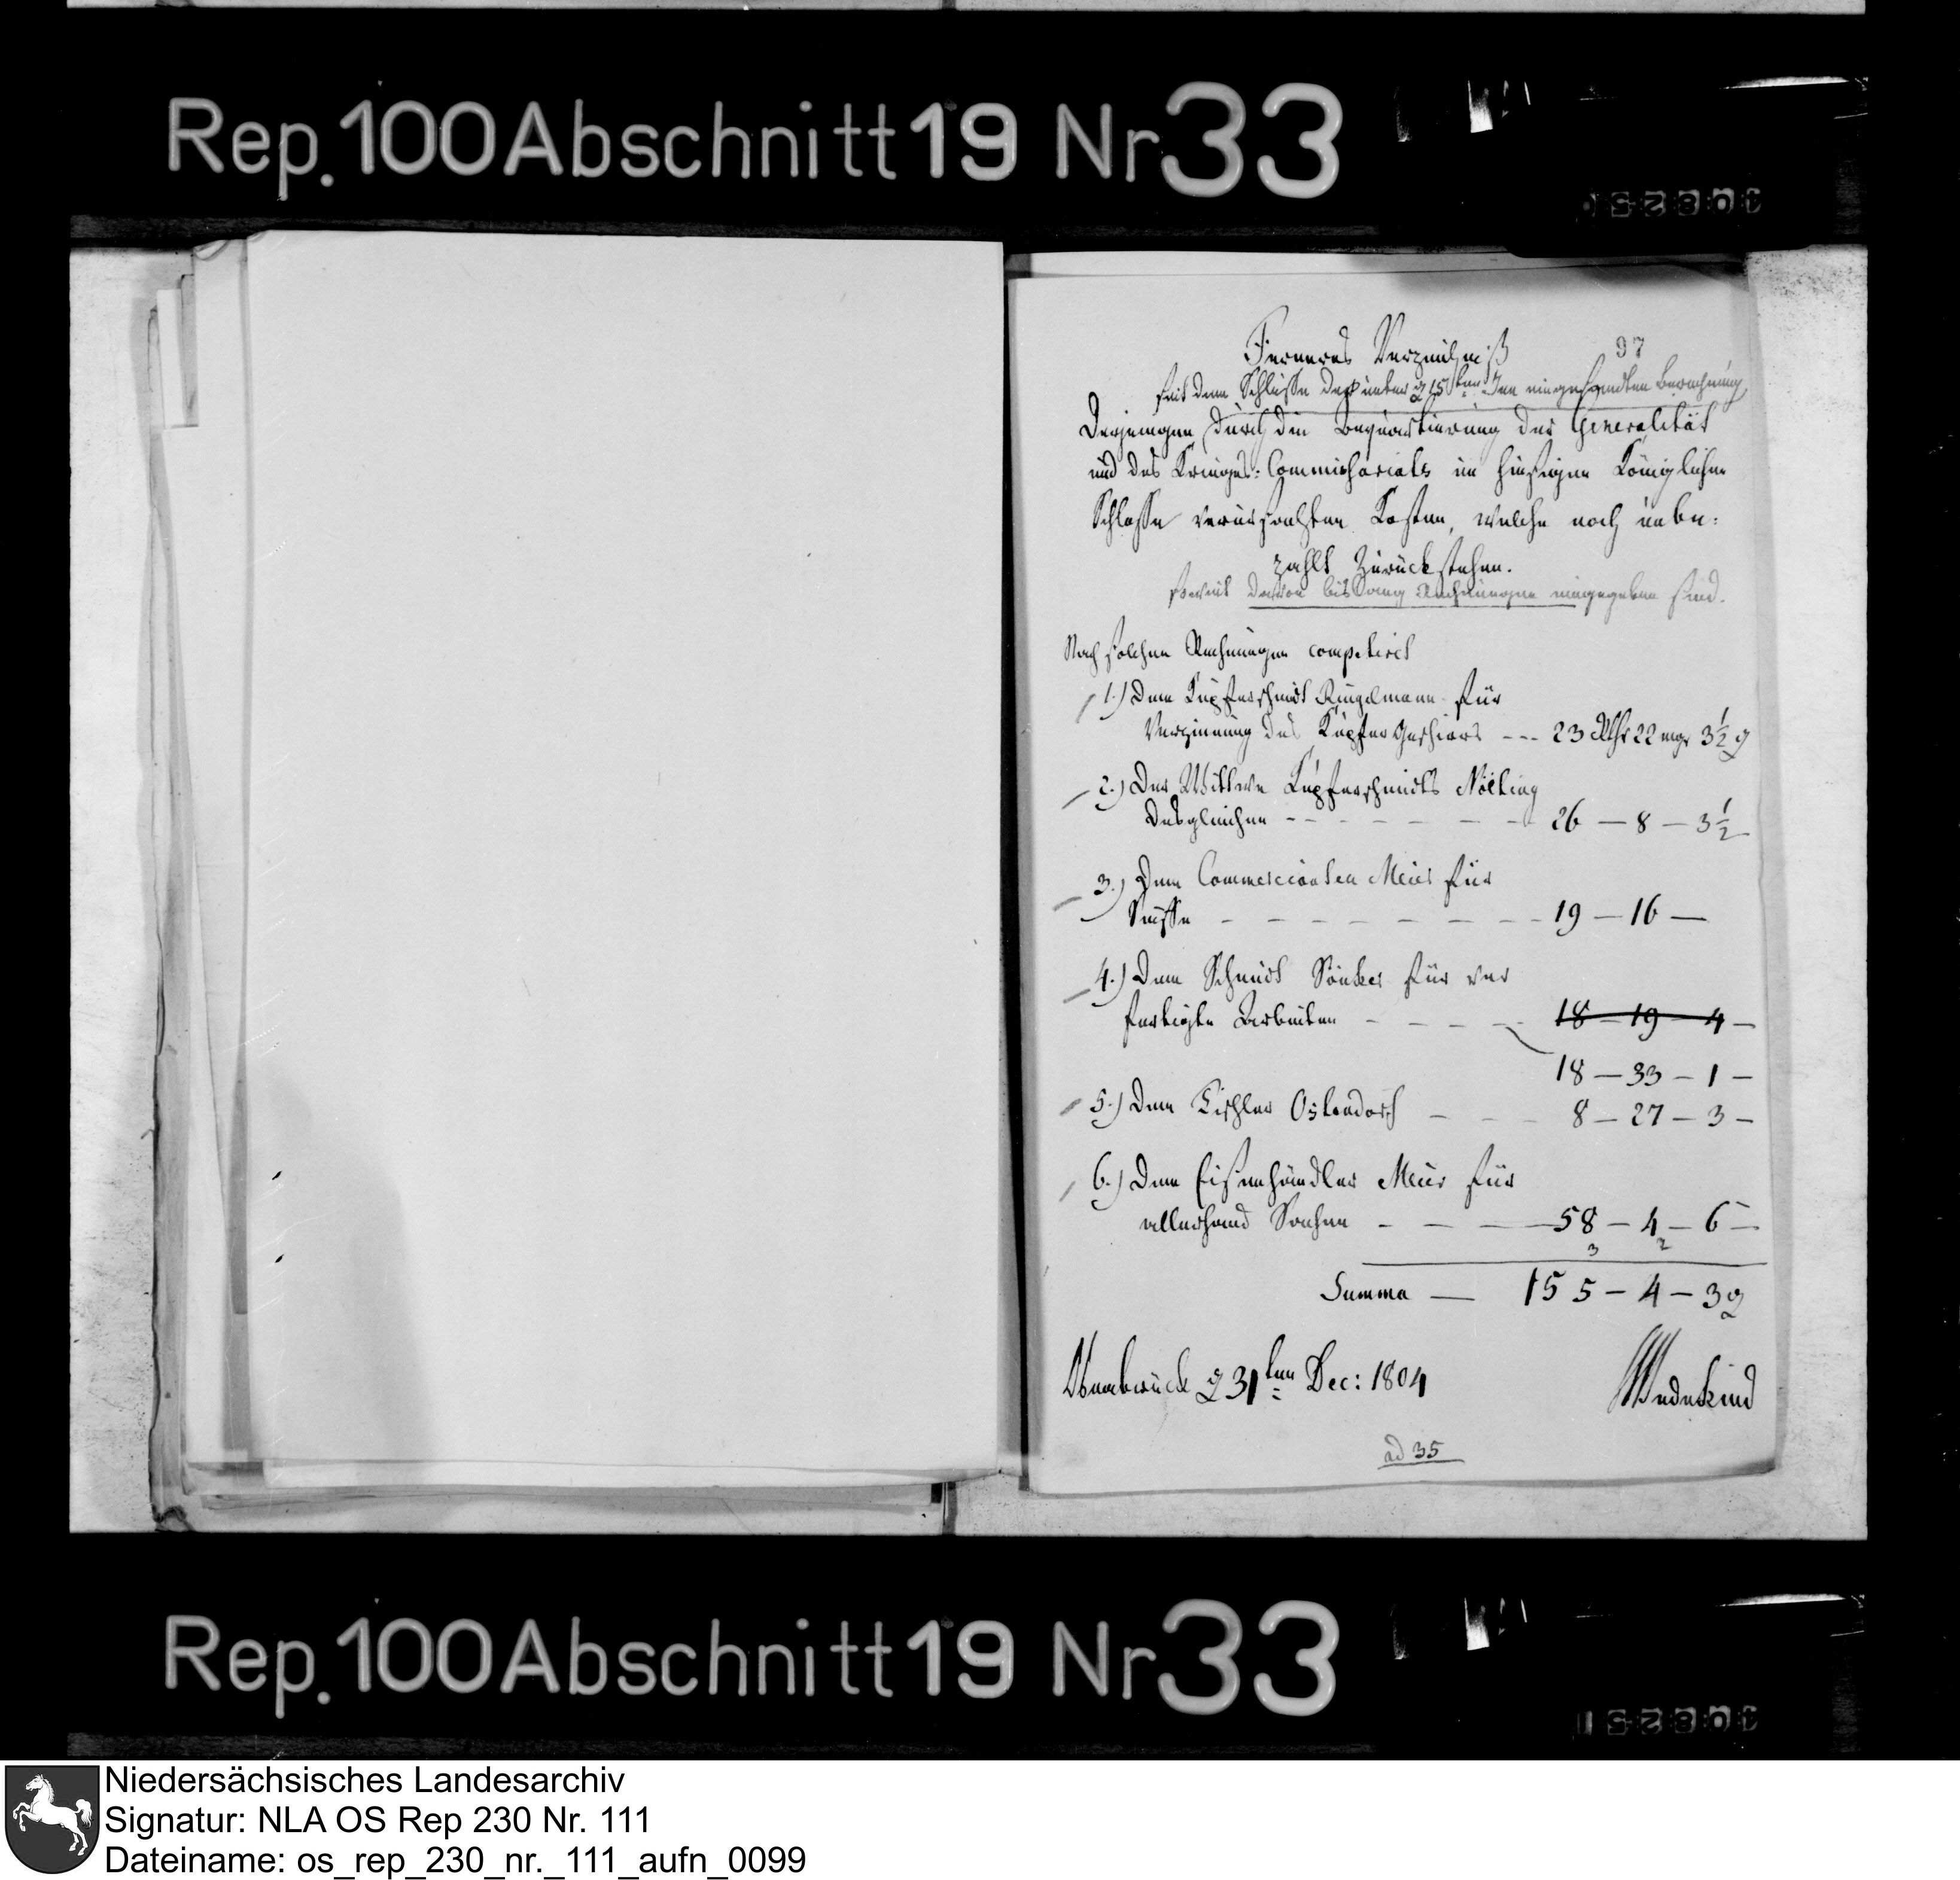 Rep. 100 Abschnitt 19 Nr 33
97
Ferneres Verzeichniß
seit dem Schlusse der unterm 15ten Jan eingesandten Berechnung,
Derjenigen, durch die Bequartierung der Generalität
und des Krieges-Commissariats im hiesigen Königlichen
Schlosse verursachten Kosten, welche noch unbe-
zahlt zurückstehen.
soweit davon bislang Rechnungen eingegeben sind.
Nach solchen Rechnungen competirt
1.) Dem Kupferschmidt Ringelmann für
Verzinnung des Kupfer Geschirrs --- 23 Rthr 22 mgr 3½ ₰
2.) Der Wittwe Kupferschmidts Nölting
desgleichen - - - - - - 26 — 8 — 3½
3.) Dem Commercianten Meier für
- - - - - - - - 19 — 16 —
4.) Dem Schmidt Sünker für ver
fertigte Arbeiten - - - - 18 — 19 — 4 —
18 — 33 — 1 —
5.) Dem Tischler Ostendorf - - - 8 — 27 — 3 —
6.) Dem Eisenhändler Meier für
allerhand Sachen - — — 58 — 4 — 6 —
3 2
Summa — 155 — 4 — 3 ₰
Osnabrück d 31ten Dec: 1804
Wedekind
ad 35
Rep. 100 Abschnitt 19 Nr 33
Niedersächsisches Landesarchiv
Signatur: NLA OS Rep 230 Nr. 111
Dateiname: os_rep_230_nr._111_aufn_0099